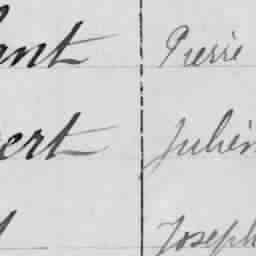 ant Pierre
ert Julien
Joseph